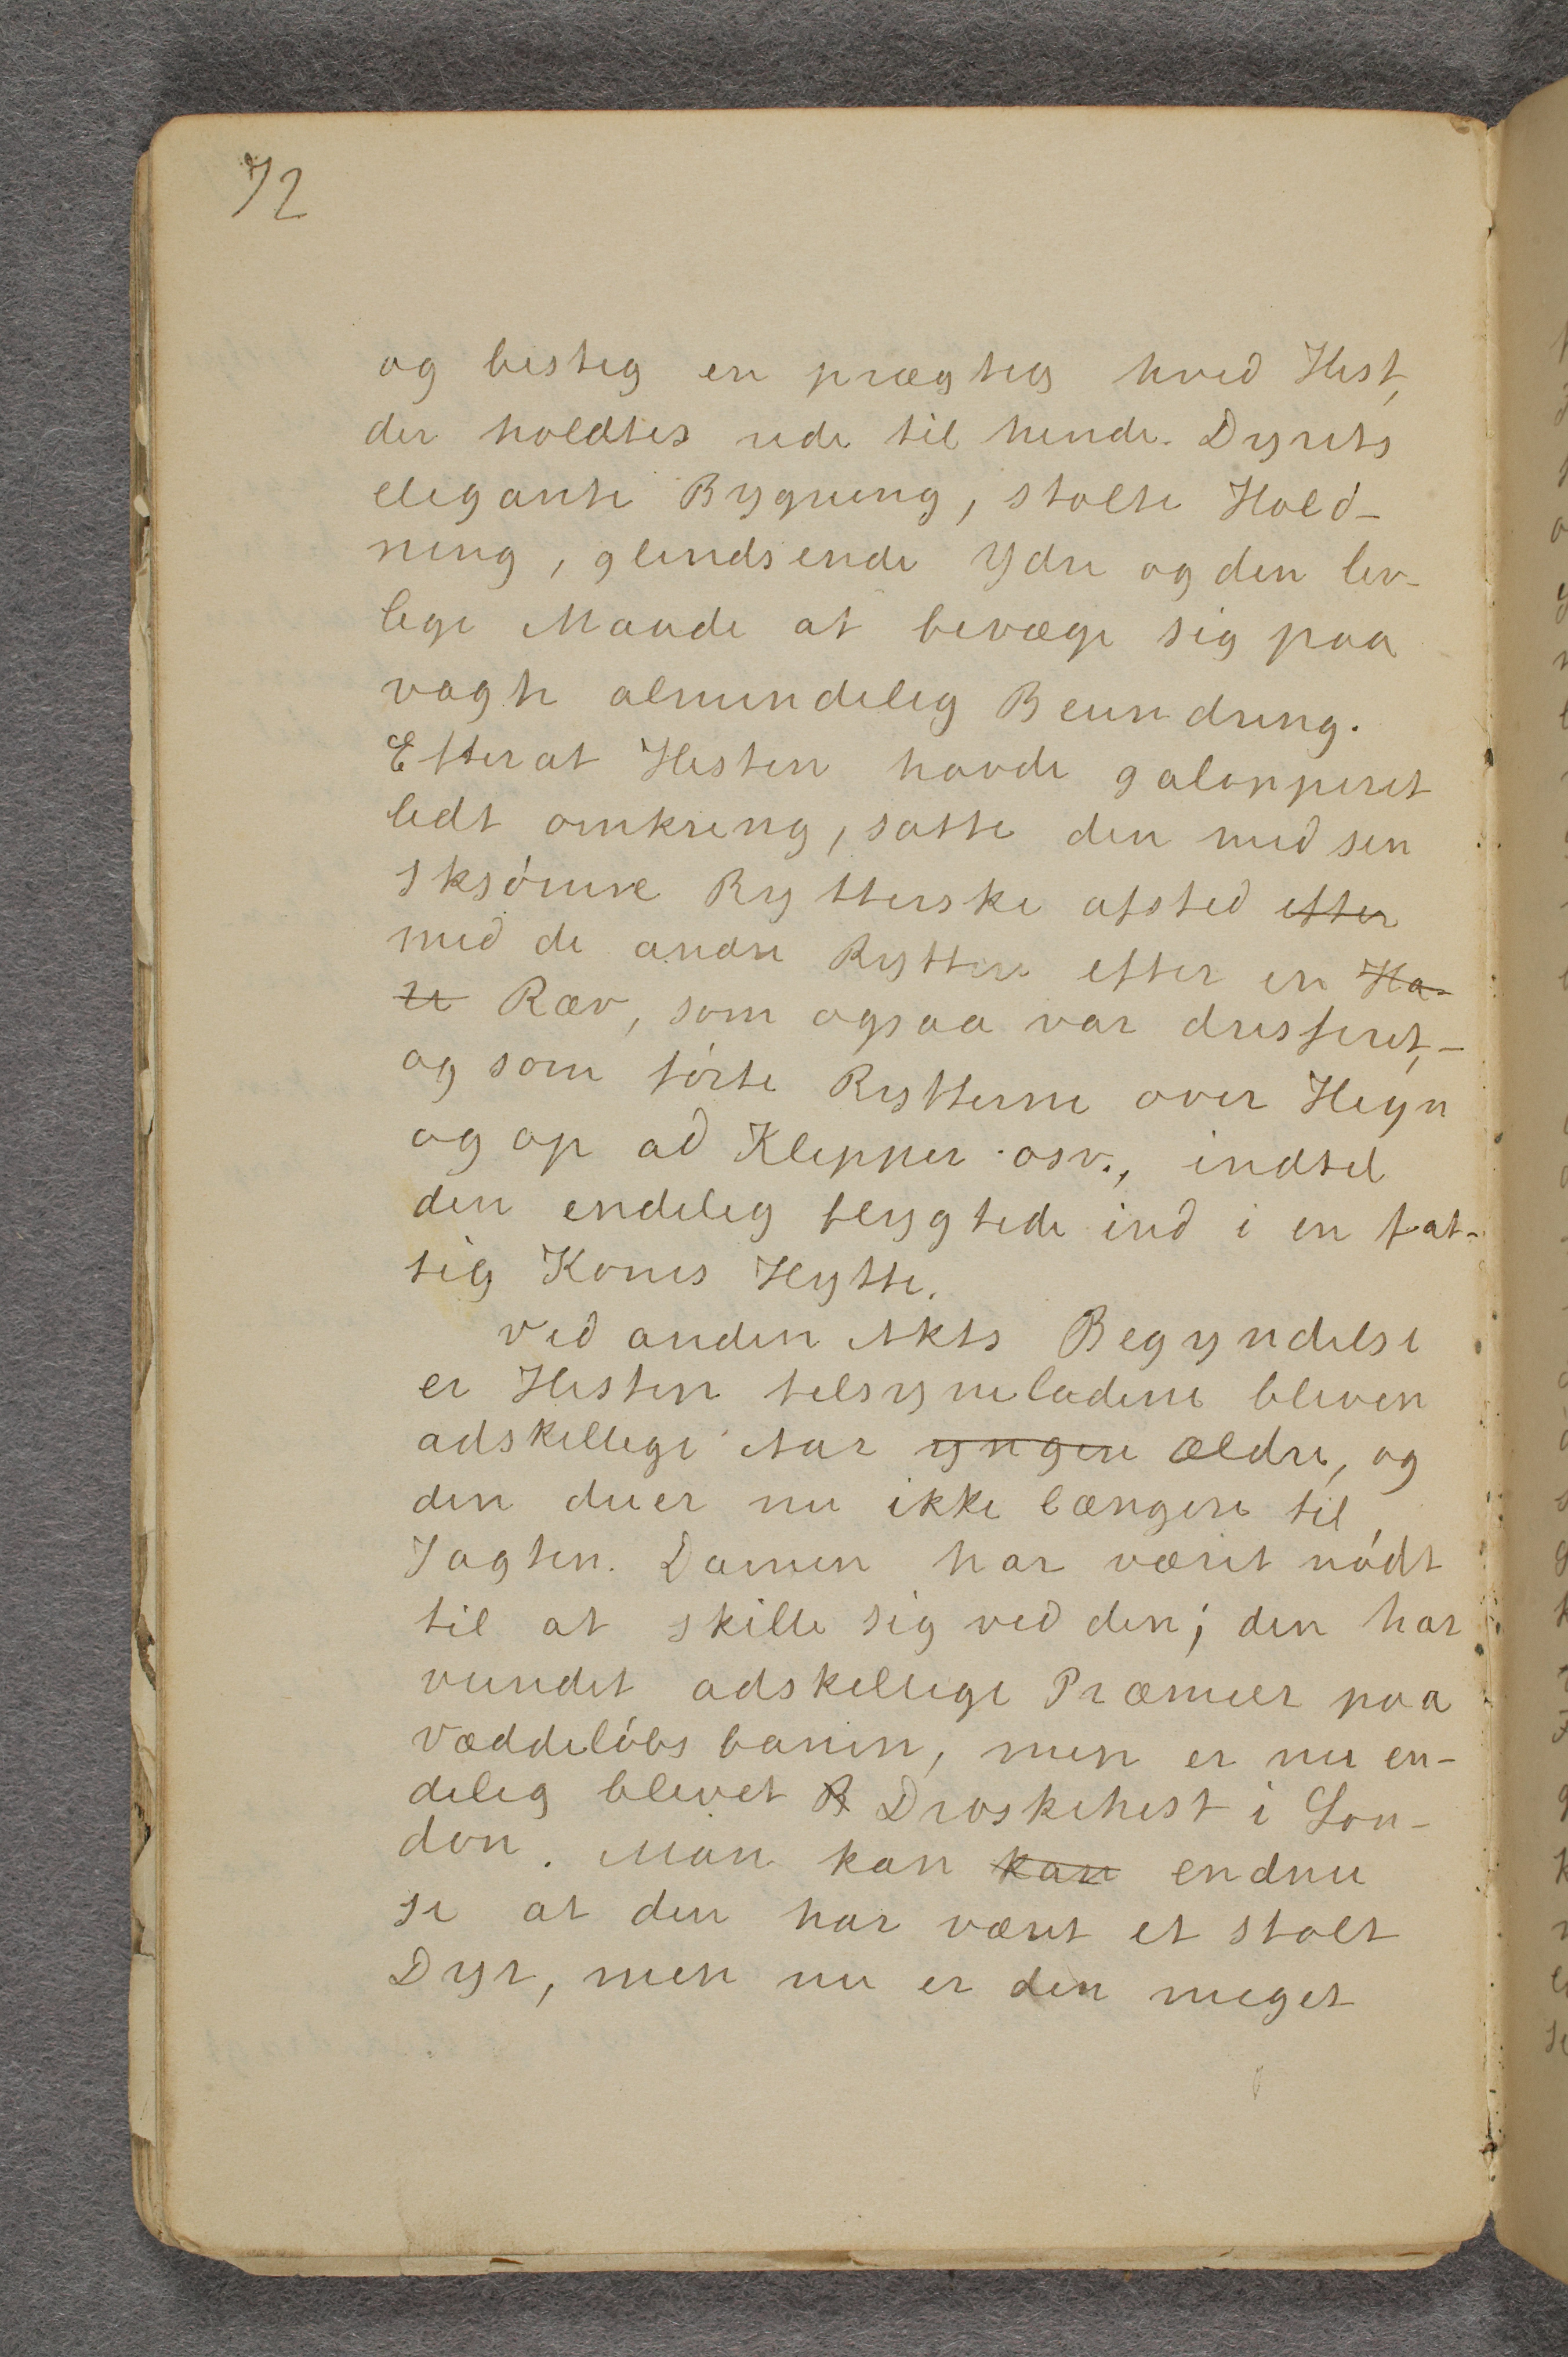 72
og besteg en prægtig hvid Hest,
der holdtes rede til hende. Dyrets
elegante Bygning, stolte Hold-
ning, glindsende Ydre og den liv-
lige Maade at bevæge sig paa
vagte almindelig Beundring.
Efterat Hesten havde galopperet
lidt omkring, satte den med sin
skjønne Rytterske afsted efter
med de andre Ryttere efter en Ha-
re Ræv, som ogsaa var dresseret,-
og som førte Rytterne over Hegn
og op ad Klipper osv., indtil
den endelig flygtede ind i en fat-
tig Kones Hytte.
Ved anden Akts Begyndelse
er Hesten tilsyneladene bleven
adskillige Aar yngere ældre, og
den duer nu ikke længere til
Jagten. Damen har været nødt
til at skille sig ved den; den har
vundet adskellige Præmier paa
Væddeløbsbanen, men er nu en-
delig blevet R Droskehest i Lon-
don. Man kan kan endnu
se at den har været et stolt
Dyr, men nu er den meget